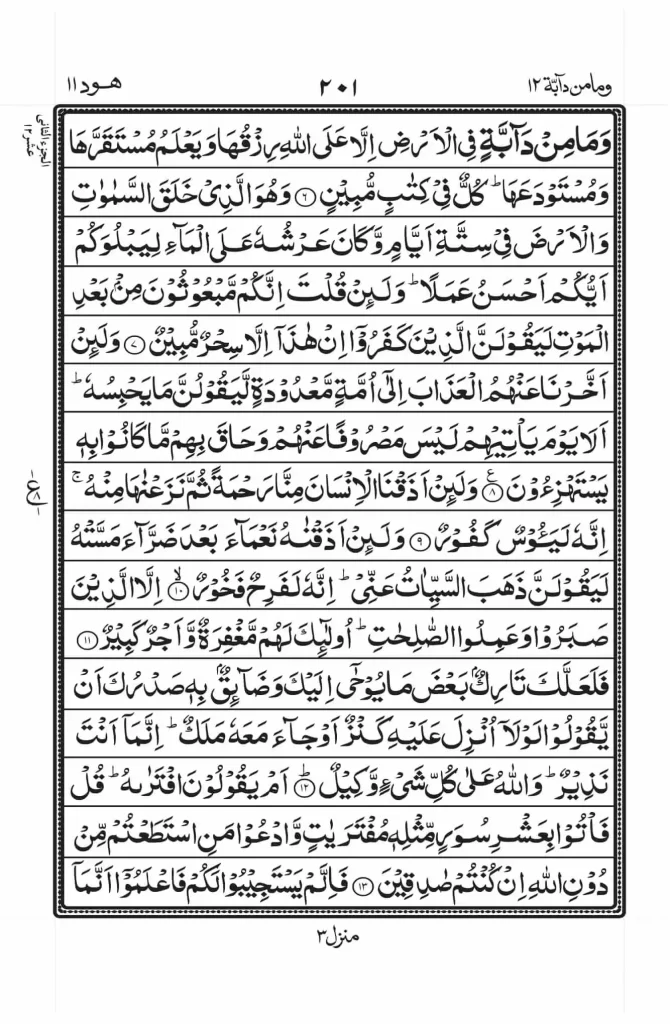 وما من دآبة ١٢ ٢٠١ هود ١١
الجزء الثانی عشر ١٢
وَمَا مِنْ دَآبَّةٍ فِی الْاَرْضِ اِلَّا عَلَی اللّٰهِ رِزْقُهَا وَیَعْلَمُ مُسْتَقَرَّهَا
وَمُسْتَوْدَعَهَا ؕ كُلٌّ فِیْ كِتٰبٍ مُّبِیْنٍ ۝٦ وَهُوَ الَّذِیْ خَلَقَ السَّمٰوٰتِ
وَالْاَرْضَ فِیْ سِتَّةِ اَیَّامٍ وَّكَانَ عَرْشُهٗ عَلَی الْمَآءِ لِیَبْلُوَكُمْ
اَیُّكُمْ اَحْسَنُ عَمَلًا ؕ وَلَىِٕنْ قُلْتَ اِنَّكُمْ مَّبْعُوْثُوْنَ مِنْۢ بَعْدِ
الْمَوْتِ لَیَقُوْلَنَّ الَّذِیْنَ كَفَرُوْۤا اِنْ هٰذَاۤ اِلَّا سِحْرٌ مُّبِیْنٌ ۝٧ وَلَىِٕنْ
اَخَّرْنَا عَنْهُمُ الْعَذَابَ اِلٰۤی اُمَّةٍ مَّعْدُوْدَةٍ لَّیَقُوْلُنَّ مَا یَحْبِسُهٗ ؕ
اَلَا یَوْمَ یَاْتِیْهِمْ لَیْسَ مَصْرُوْفًا عَنْهُمْ وَحَاقَ بِهِمْ مَّا كَانُوْا بِهٖ
یَسْتَهْزِءُوْنَ ۝٨ ع وَلَىِٕنْ اَذَقْنَا الْاِنْسَانَ مِنَّا رَحْمَةً ثُمَّ نَزَعْنٰهَا مِنْهُ ۚ
ع ٨
اِنَّهٗ لَیَـُٔوْسٌ كَفُوْرٌ ۝٩ وَلَىِٕنْ اَذَقْنٰهُ نَعْمَآءَ بَعْدَ ضَرَّآءَ مَسَّتْهُ
لَیَقُوْلَنَّ ذَهَبَ السَّیِّاٰتُ عَنِّیْ ؕ اِنَّهٗ لَفَرِحٌ فَخُوْرٌ ۝١٠ ۙ اِلَّا الَّذِیْنَ
صَبَرُوْا وَعَمِلُوا الصّٰلِحٰتِ ؕ اُولٰٓىِٕكَ لَهُمْ مَّغْفِرَةٌ وَّاَجْرٌ كَبِیْرٌ ۝١١
فَلَعَلَّكَ تَارِكٌۢ بَعْضَ مَا یُوْحٰۤی اِلَیْكَ وَضَآىِٕقٌۢ بِهٖ صَدْرُكَ اَنْ
یَّقُوْلُوْا لَوْلَاۤ اُنْزِلَ عَلَیْهِ كَنْزٌ اَوْ جَآءَ مَعَهٗ مَلَكٌ ؕ اِنَّمَاۤ اَنْتَ
نَذِیْرٌ ؕ وَاللّٰهُ عَلٰی كُلِّ شَیْءٍ وَّكِیْلٌ ۝١٢ ؕ اَمْ یَقُوْلُوْنَ افْتَرٰىهُ ؕ قُلْ
فَاْتُوْا بِعَشْرِ سُوَرٍ مِّثْلِهٖ مُفْتَرَیٰتٍ وَّادْعُوْا مَنِ اسْتَطَعْتُمْ مِّنْ
دُوْنِ اللّٰهِ اِنْ كُنْتُمْ صٰدِقِیْنَ ۝١٣ فَاِلَّمْ یَسْتَجِیْبُوْا لَكُمْ فَاعْلَمُوْۤا اَنَّمَاۤ
منزل ٣